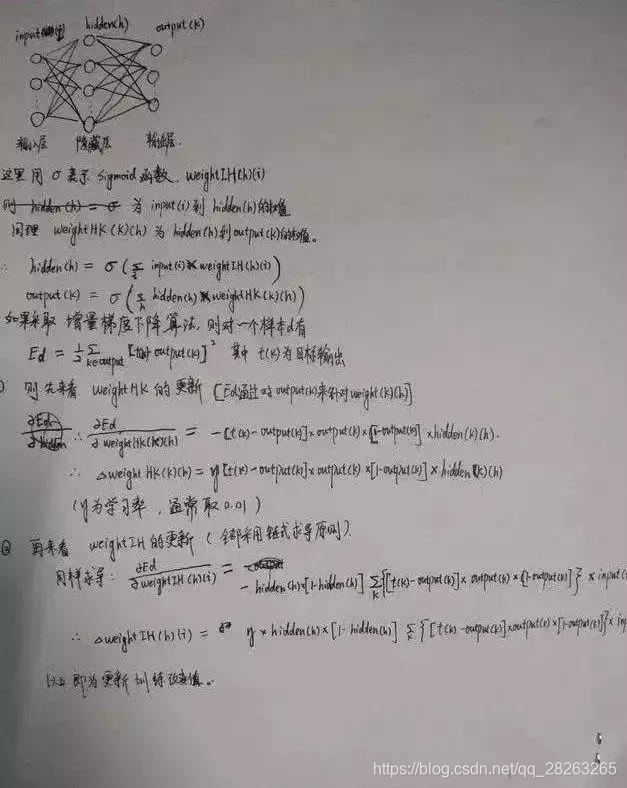 input(i) hidden(h) output(k)
输入层 隐藏层 输出层.
这里用 σ 表示 sigmoid 函数. weightIH(h)(i)
则 hidden(h) = σ 为 input(i) 到 hidden(h)的权值
同理 weightHK(k)(h) 为 hidden(h)到output(k)的权值。
∴ hidden(h) = σ(∑i input(i)×weightIH(h)(i))
output(k) = σ(∑h hidden(h)×weightHK(k)(h))
如果采取 增量梯度下降算法, 则对一个样本d有
Ed = 1/2 ∑k∈output [t(k)-output(k)]² 其中 t(k)为目标输出
则先来看 weightHK 的更新 [Ed通过对output(k)来针对weight(k)(h)]
∂Ed/∂hidden ∴ ∂Ed/∂weightHK(k)(h) = -[t(k)-output(k)]×output(k)×[1-output(k)]×hidden(k)(h).
∴ △weightHK(k)(h) = y[t(k)-output(k)]×output(k)×[1-output(k)]×hidden(k)(h)
(y为学习率, 通常取0.01)
② 再来看 weightIH的更新 (全部采用链式求导原则).
同样求导: ∂Ed/∂weightIH(h)(i) = -hidden(h)×[1-hidden(h)] ∑k{[t(k)-output(k)]×output(k)×[1-output(k)]}×input(
∴ △weightIH(h)(i) = y×hidden(h)×[1-hidden(h)] ∑k{[t(k)-output(k)]×output(k)×[1-output(k)]}×inp
以上即为更新训练改变值。
https://blog.csdn.net/qq_28263265